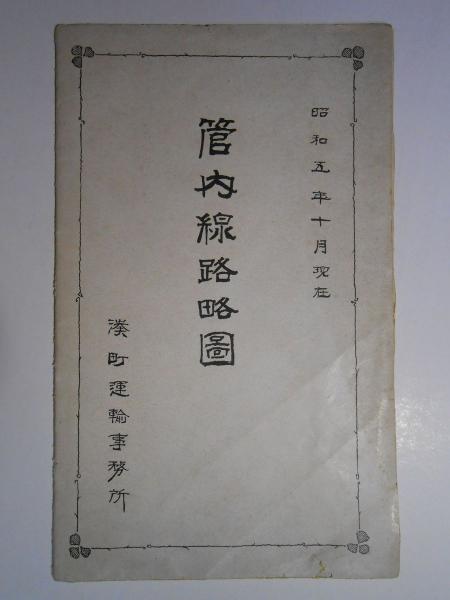 昭和五年十月現在
管内線路略圖
湊町運輸事務所